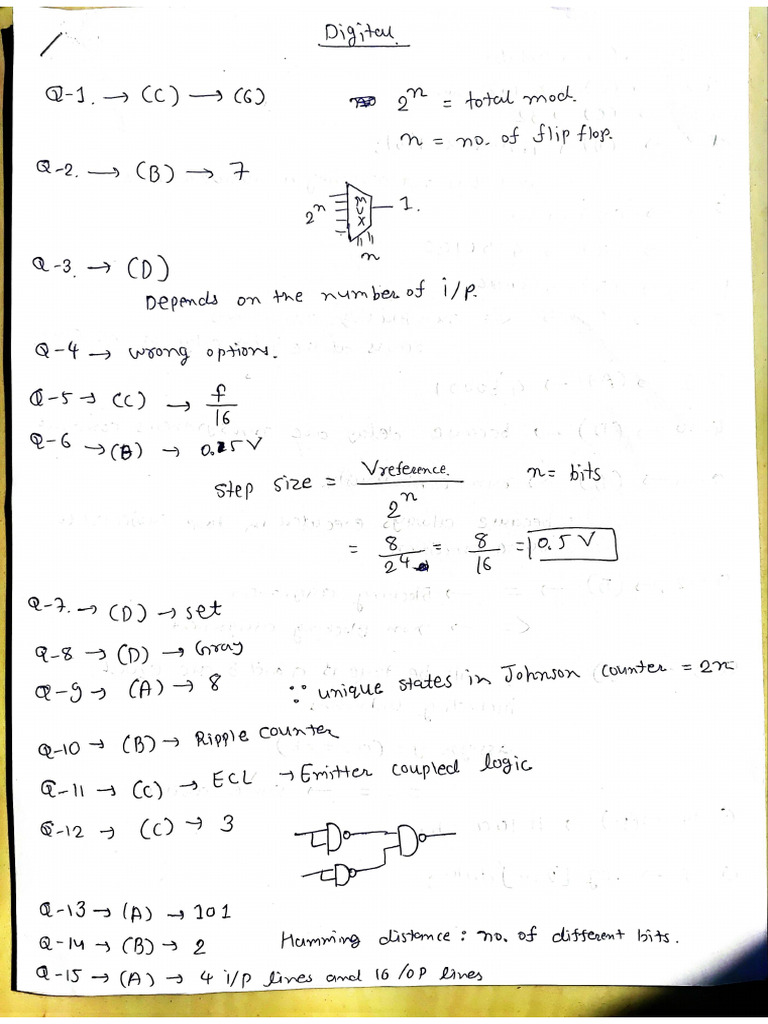 Digital.
Q-1. → (C) → (6) 2^n = total mod.
n = no. of flip flop.
Q-2. → (B) → 7
2^n MUX 1.
n
Q-3. → (D)
Depends on the number of i/p.
Q-4 → wrong options.
Q-5 → (C) → f/16
Q-6 → (B) → 0.5V
Step size = Vreference./2^n n= bits
= 8/2^4 = 8/16 = 0.5 V
Q-7. → (D) → set
Q-8 → (D) → Gray
Q-9 → (A) → 8 ∵ unique states in Johnson counter = 2n
Q-10 → (B) → Ripple counter
Q-11 → (C) → ECL → Emitter coupled logic
Q-12 → (C) → 3
Q-13 → (A) → 101
Q-14 → (B) → 2 Hamming distance : no. of different bits.
Q-15 → (A) → 4 i/p lines and 16 /op lines